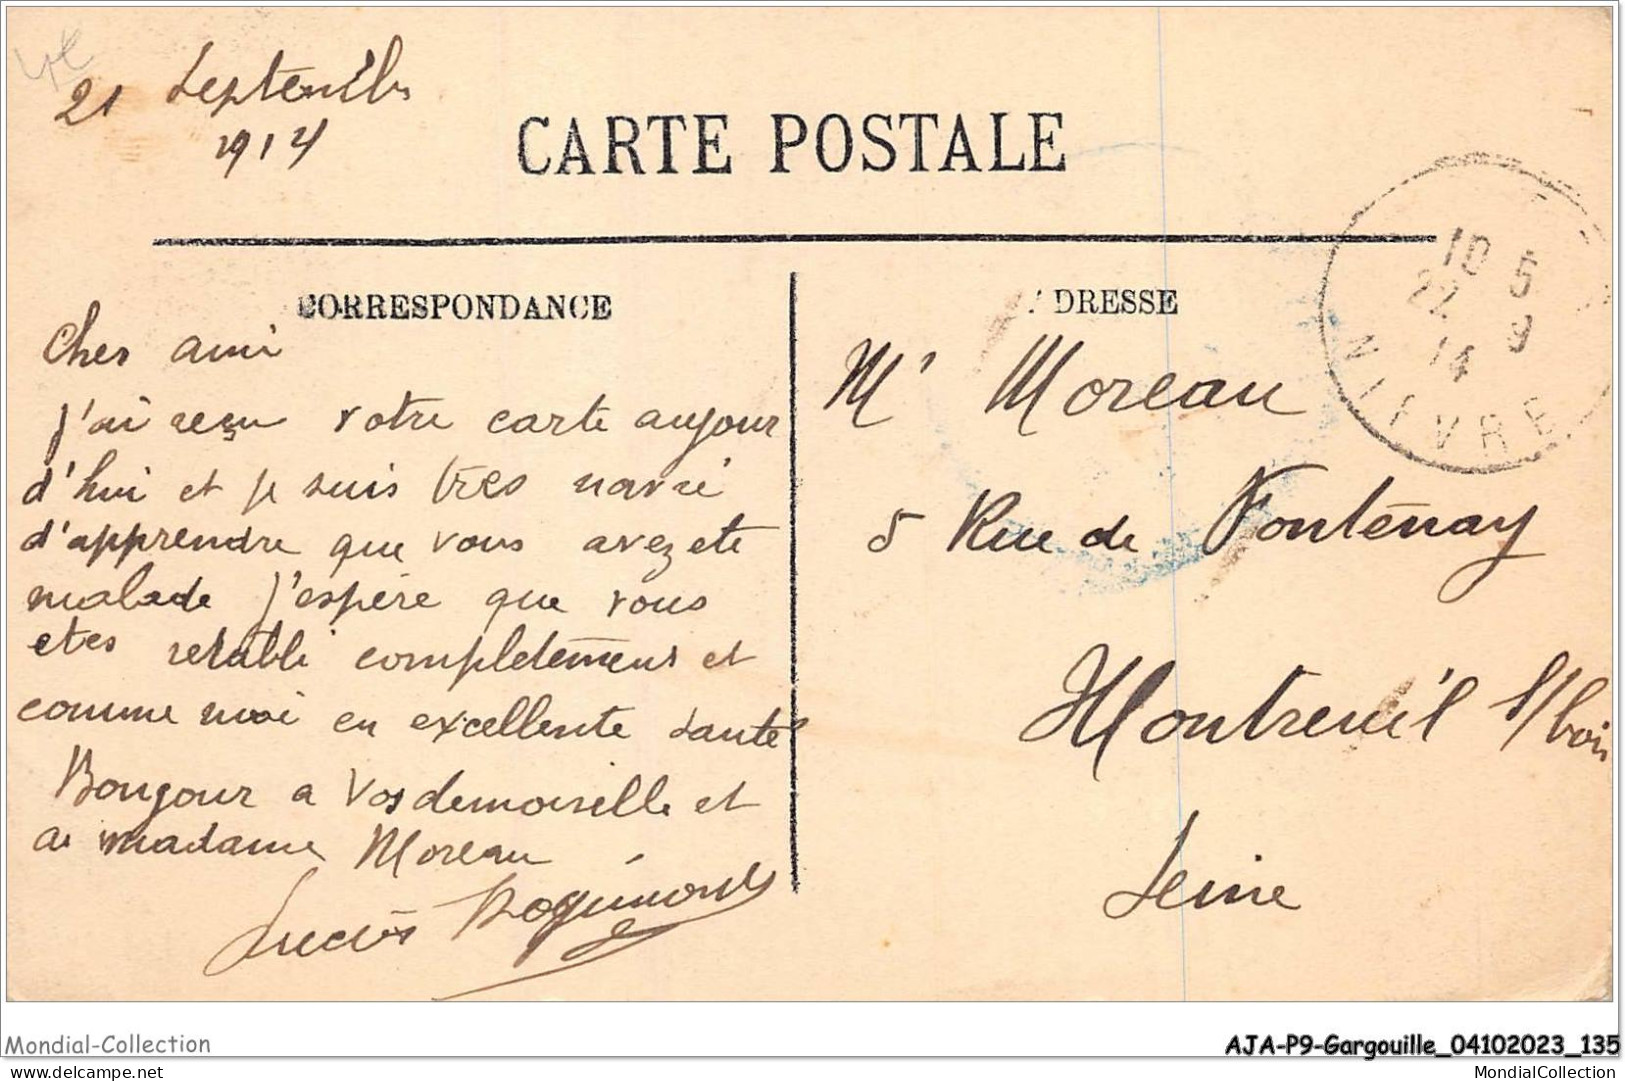 21 Septembre
1914
CARTE POSTALE
CORRESPONDANCE
Cher ami
j'ai reçu votre carte aujour
d'hui et je suis très navré
d'apprendre que vous avez ete
malade j'espère que vous
etes retabli completement et
comme moi en excellente santé
Bonjour a vos demoiselle et
a madame Moreau
Lucien
ADRESSE
10 5
22 9
14
NIEVRE
Mr Moreau
5 Rue de Fontenay
Montreuil s/bois
Seine
Mondial-Collection
AJA-P9-Gargouille_04102023_135
delcampe.net
MondialCollection